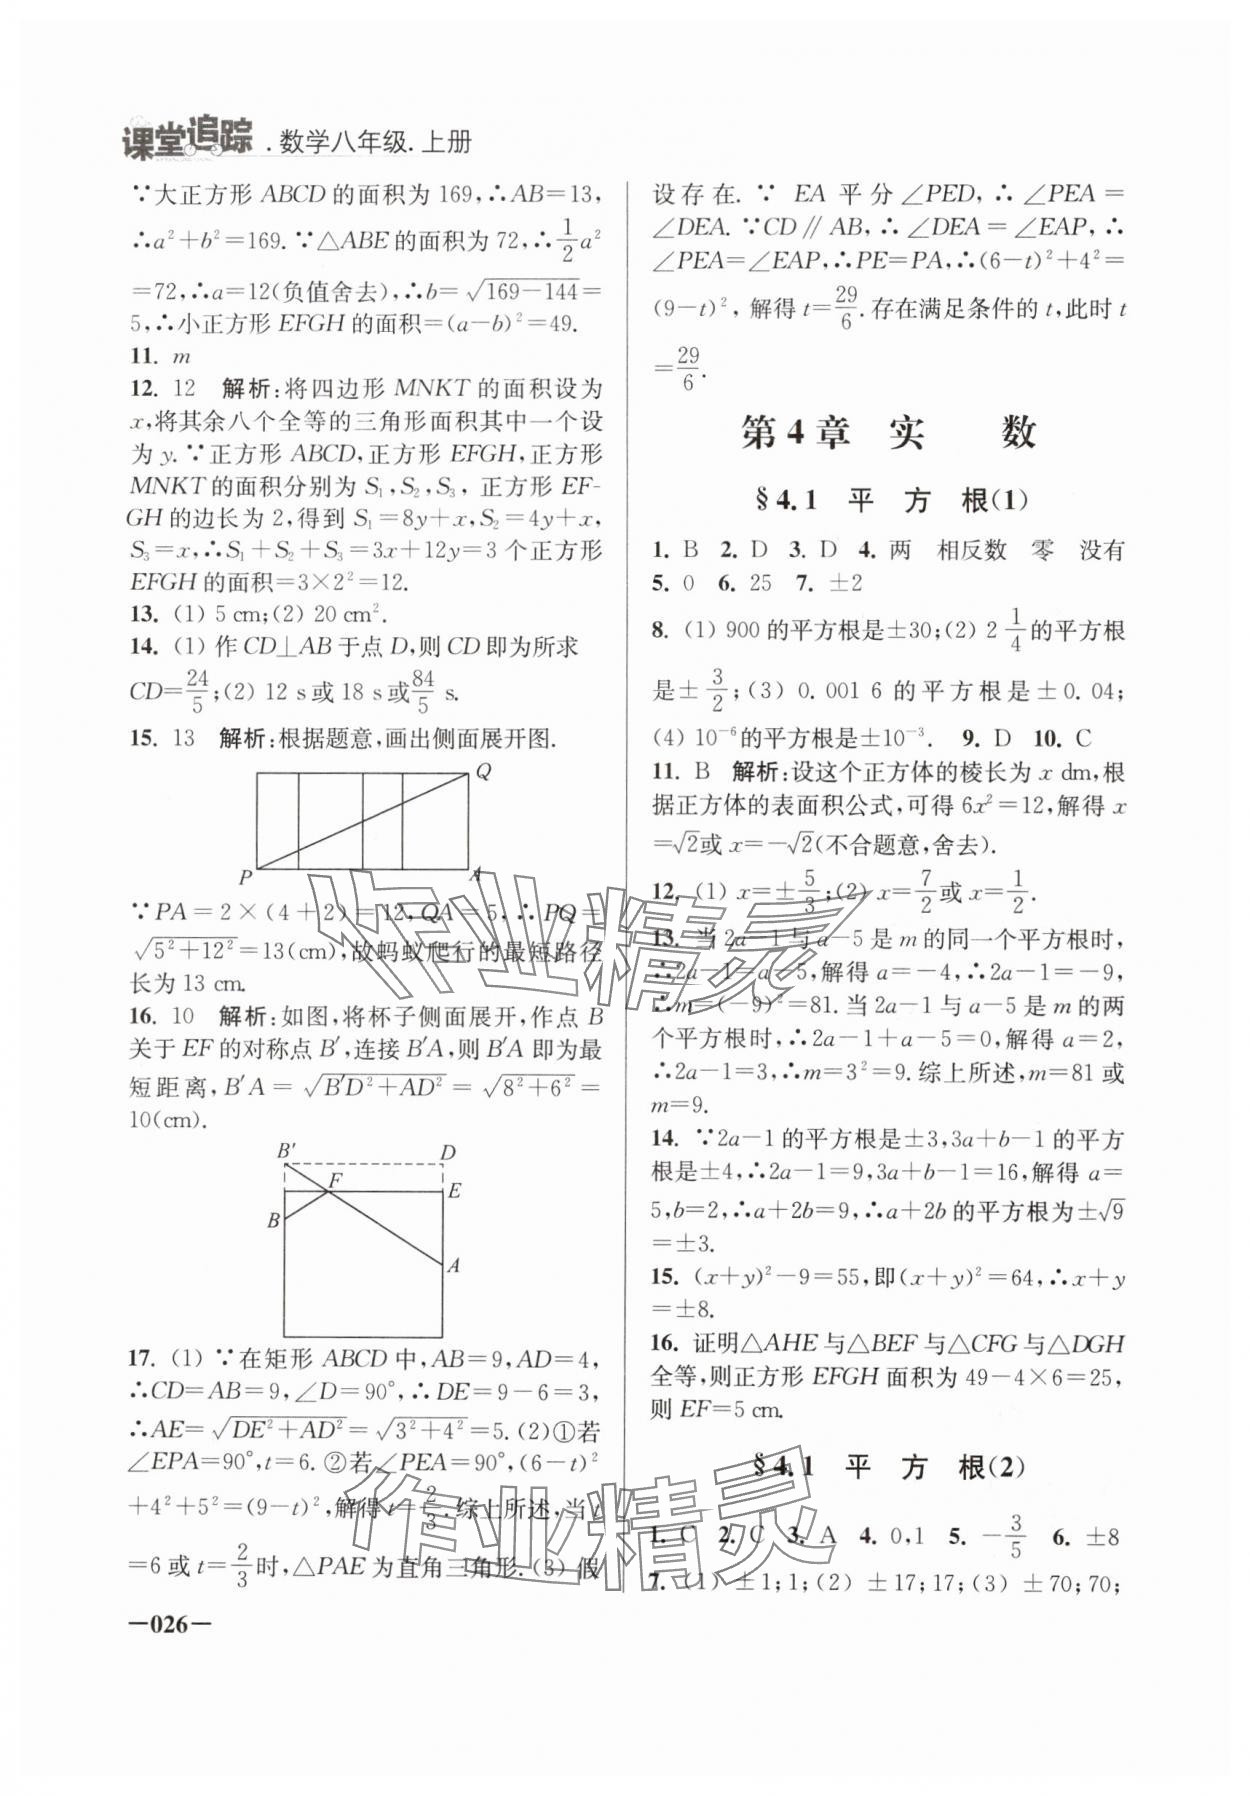 课堂追踪 . 数学八年级. 上册
∵大正方形 ABCD 的面积为 169,∴AB=13,
∴a²+b²=169. ∵△ABE 的面积为 72,∴1/2a²
=72,∴a=12(负值舍去),∴b=√(169-144)=
5,∴小正方形 EFGH 的面积=(a-b)²=49.
11. m
12. 12 解析:将四边形 MNKT 的面积设为
x,将其余八个全等的三角形面积其中一个设
为 y. ∵正方形 ABCD,正方形 EFGH,正方形
MNKT 的面积分别为 S₁,S₂,S₃, 正方形 EF-
GH 的边长为 2,得到 S₁=8y+x,S₂=4y+x,
S₃=x,∴S₁+S₂+S₃=3x+12y=3 个正方形
EFGH 的面积=3×2²=12.
13. (1) 5 cm;(2) 20 cm².
14. (1) 作 CD⊥AB 于点 D,则 CD 即为所求
CD=24/5;(2) 12 s 或 18 s 或84/5 s.
15. 13 解析:根据题意,画出侧面展开图.
Q
P A
∵PA=2×(4+2)=12,QA=5,∴PQ=
√(5²+12²)=13(cm),故蚂蚁爬行的最短路径
长为 13 cm.
16. 10 解析:如图,将杯子侧面展开,作点 B
关于 EF 的对称点 B′,连接 B′A,则 B′A 即为最
短距离,B′A=√(B′D²+AD²)=√(8²+6²)=
10(cm).
B′ D
F E
B
A
17. (1) ∵在矩形 ABCD 中,AB=9,AD=4,
∴CD=AB=9,∠D=90°,∴DE=9-6=3,
∴AE=√(DE²+AD²)=√(3²+4²)=5. (2)①若
∠EPA=90°,t=6. ②若∠PEA=90°,(6-t)²
+4²+5²=(9-t)²,解得 t=2/3. 综上所述,当 t
=6 或 t=2/3时,△PAE 为直角三角形. (3) 假
—026—
设存在. ∵ EA 平分∠PED,∴∠PEA=
∠DEA. ∵CD∥AB,∴∠DEA=∠EAP,∴
∠PEA=∠EAP,∴PE=PA,∴(6-t)²+4²=
(9-t)²,解得 t=29/6. 存在满足条件的 t,此时 t
=29/6.
第 4 章 实 数
§4.1 平 方 根(1)
1. B 2. D 3. D 4. 两 相反数 零 没有
5. 0 6. 25 7. ±2
8. (1) 900 的平方根是±30;(2) 2 1/4 的平方根
是±3/2;(3) 0.001 6 的平方根是±0.04;
(4) 10⁻⁶的平方根是±10⁻³. 9. D 10. C
11. B 解析:设这个正方体的棱长为 x dm,根
据正方体的表面积公式,可得 6x²=12,解得 x
=√2或 x=-√2(不合题意,舍去).
12. (1) x=±5/3;(2) x=7/2或 x=1/2.
13. 当 2a-1 与 a-5 是 m 的同一个平方根时,
∴2a-1=a-5,解得 a=-4,∴2a-1=-9,
∴m=(-9)²=81. 当 2a-1 与 a-5 是 m 的两
个平方根时,∴2a-1+a-5=0,解得 a=2,
∴2a-1=3,∴m=3²=9. 综上所述,m=81 或
m=9.
14. ∵2a-1 的平方根是±3,3a+b-1 的平方
根是±4,∴2a-1=9,3a+b-1=16,解得 a=
5,b=2,∴a+2b=9,∴a+2b 的平方根为±√9
=±3.
15. (x+y)²-9=55,即(x+y)²=64,∴x+y
=±8.
16. 证明△AHE 与△BEF 与△CFG 与△DGH
全等,则正方形 EFGH 面积为 49-4×6=25,
则 EF=5 cm.
§4.1 平 方 根(2)
1. C 2. C 3. A 4. 0,1 5. -3/5 6. ±8
7. (1) ±1;1;(2) ±17;17;(3) ±70;70;
作业精灵
作业精灵